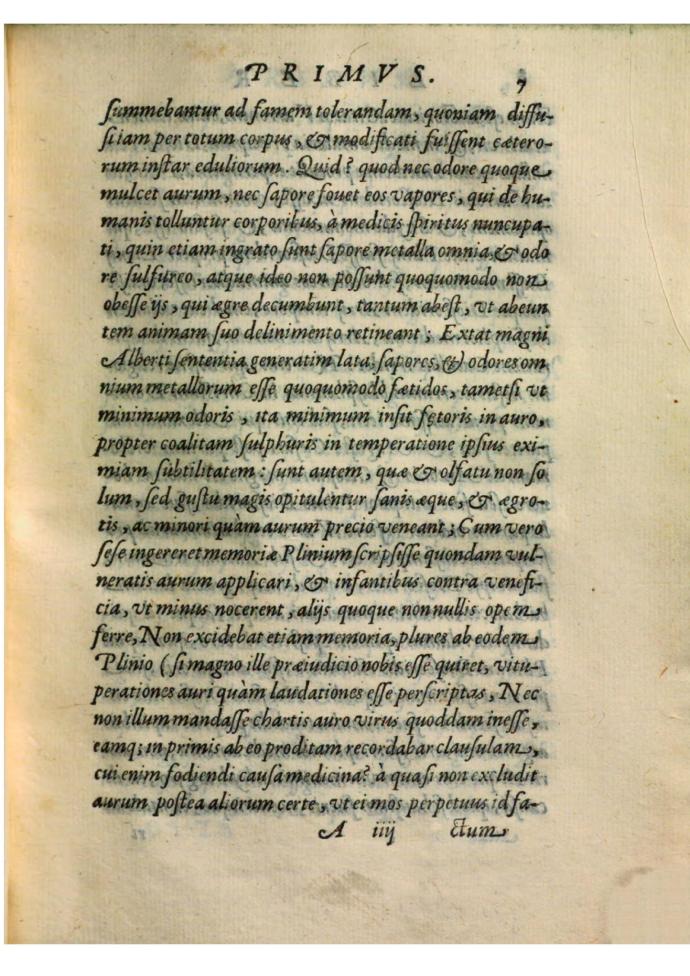 PRIMVS. 7
summebantur ad famem tolerandam, quoniam diffu-
si iam per totum corpus, & modificati fuissent cætero-
rum instar eduliorum. Quid? quod nec odore quoque
mulcet aurum, nec sapore fouet eos vapores, qui de hu-
manis tolluntur corporibus, à medicis spiritus nuncupa-
ti, quin etiam ingrato sunt sapore metalla omnia & odo
re sulfureo, atque ideo non possunt quoquomodo non
obesse ijs, qui ægre decumbunt, tantum abest, vt abeun
tem animam suo delinimento retineant; Extat magni
Alberti sententia generatim lata, sapores, & odores om
nium metallorum esse quoquomodo fætidos, tametsi vt
minimum odoris, ita minimum insit fętoris in auro,
propter coalitam sulphuris in temperatione ipsius exi-
miam subtilitatem: sunt autem, quæ & olfatu non so
lum, sed gustu magis opitulentur sanis æque, & ægro-
tis, ac minori quàm aurum precio veneant; Cum vero
sese ingereret memoriæ Plinium scripsisse quondam vul-
neratis aurum applicari, & infantibus contra venefi-
cia, vt minus nocerent, alijs quoque nonnullis opem
ferre, Non excidebat etiam memoria, plures ab eodem
Plinio (si magno ille præiudicio nobis esse quiret, vitu-
perationes auri quàm laudationes esse perscriptas, Nec
non illum mandasse chartis auro virus quoddam inesse,
eamq; in primis ab eo proditam recordabar clausulam,
cui enim fodiendi causa medicina? à quasi non excludit
aurum postea aliorum certe, vt ei mos perpetuus id fa-
A iiij ctum